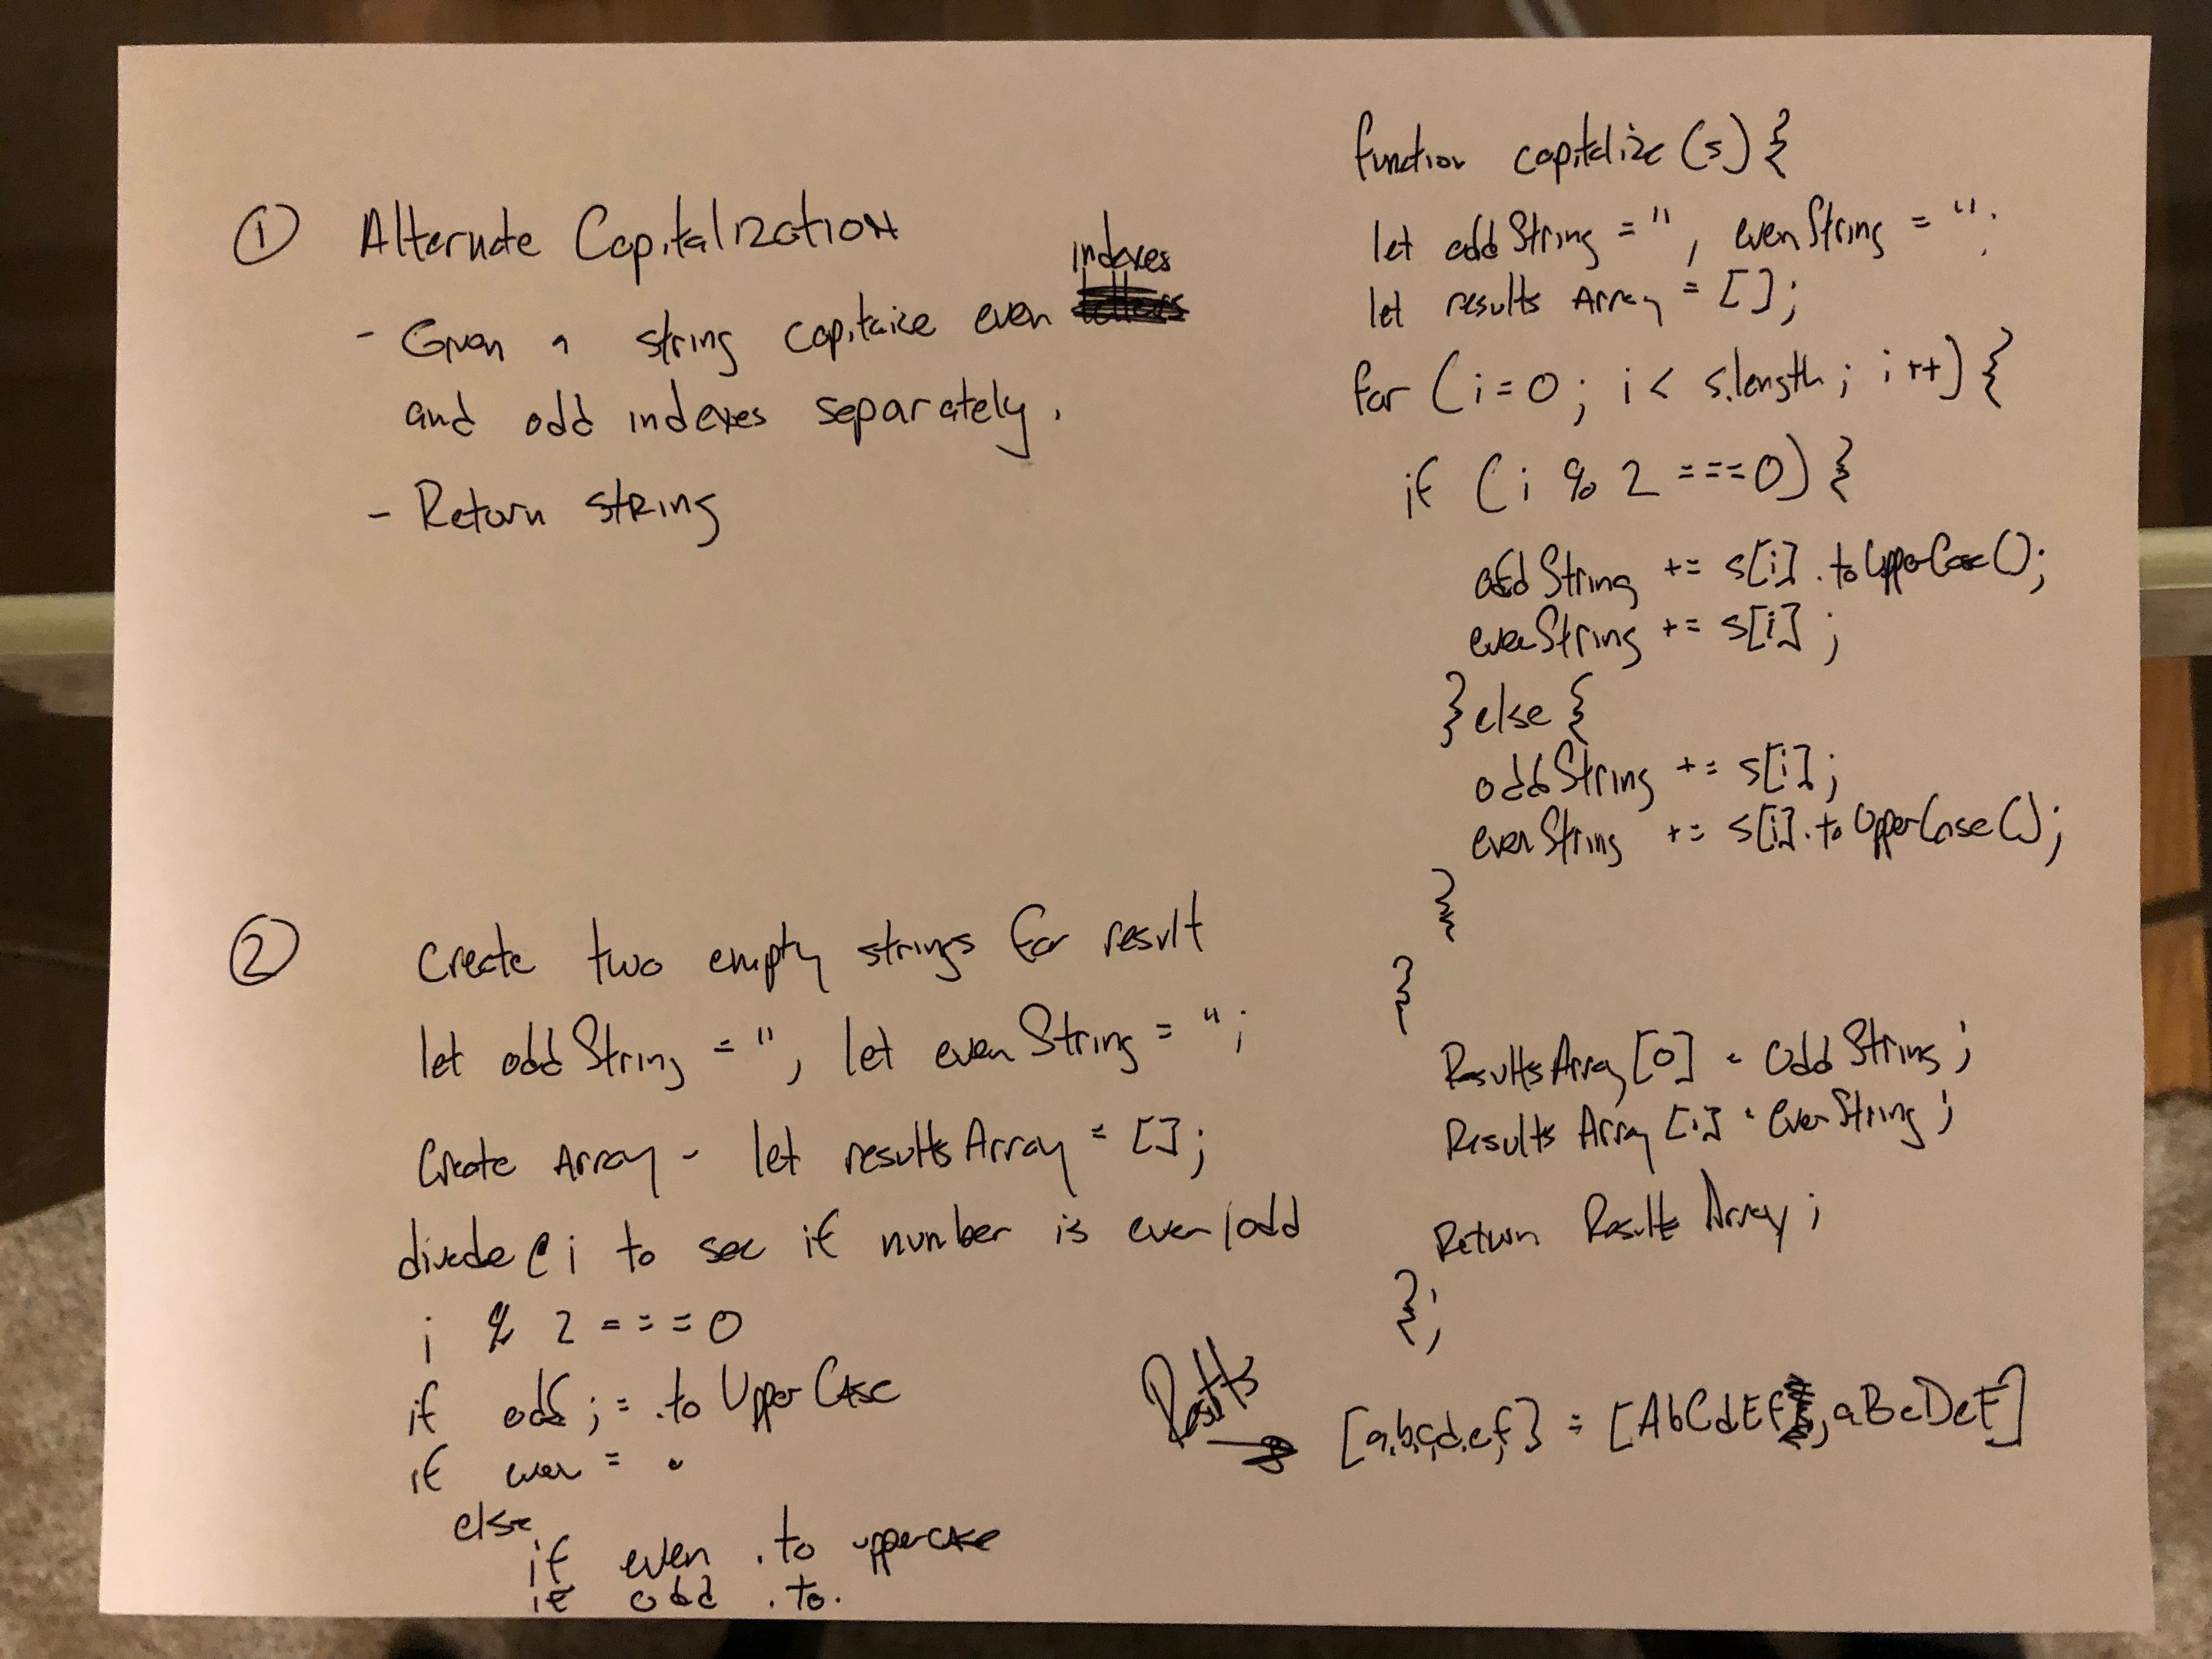 ① Alternate Capitalization
- Given a string capitaize even indexes
and odd indexes separately.
- Return string
② Create two empty strings for result
let oddString = '', let evenString = '';
Create Array - let resultsArray = [];
divede @ i to see if number is even/odd
i % 2 === 0
if odd ; = .to UpperCase
if even = "
else
if even .to uppercase
if odd .to.
function capitalize (s) {
let oddString = '', evenString = '';
let results Array = [];
for (i=0; i < s.length; i++) {
if (i % 2 === 0) {
oddString += s[i].toUpperCase();
evenString += s[i];
} else {
oddString += s[i];
evenString += s[i].toUpperCase();
}
}
ResultsArray[0] = OddString;
Results Array [1] = EvenString;
Return Results Array;
};
Results → [a,b,c,d,e,f] = [AbCdEf, aBcDeF]